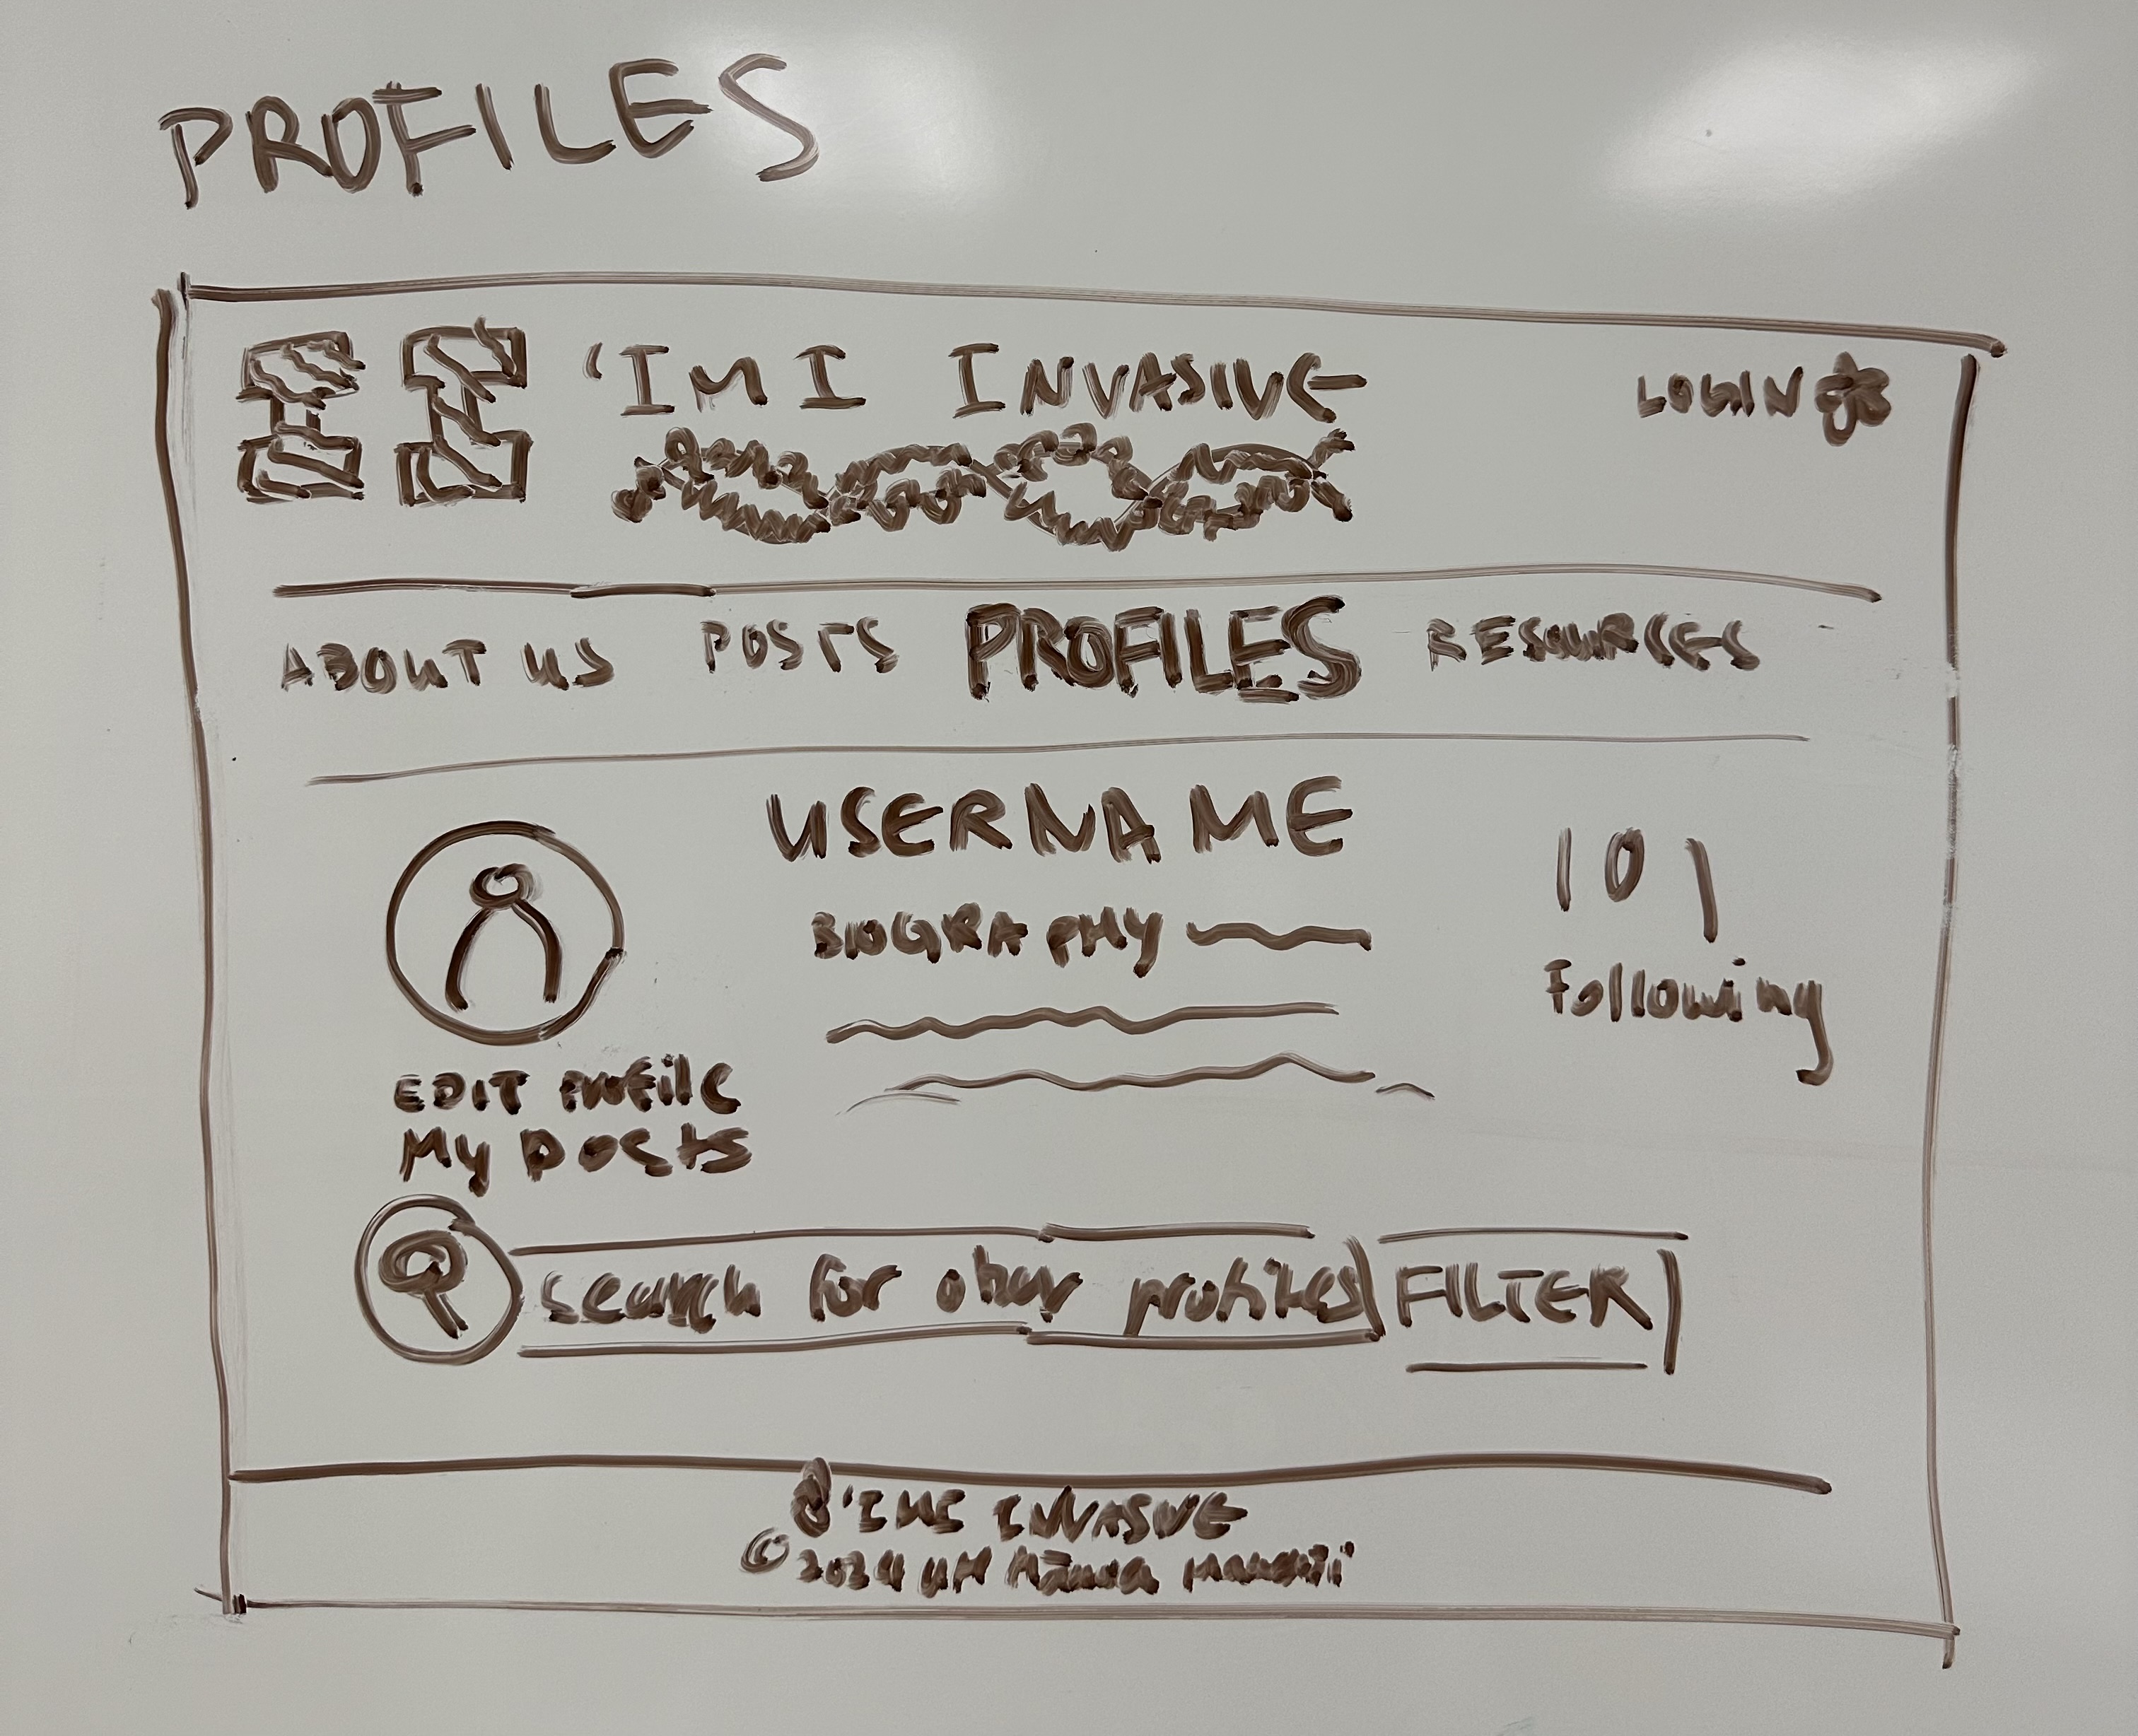 PROFILES
'IMI INVASIVE
LOGIN
ABOUT US POSTS PROFILES RESOURCES
USERNAME
BIOGRAPHY
101
Following
EDIT Profile
My Posts
search for other profiles FILTER
'IMI INVASIVE
© 2024 UH Mānoa